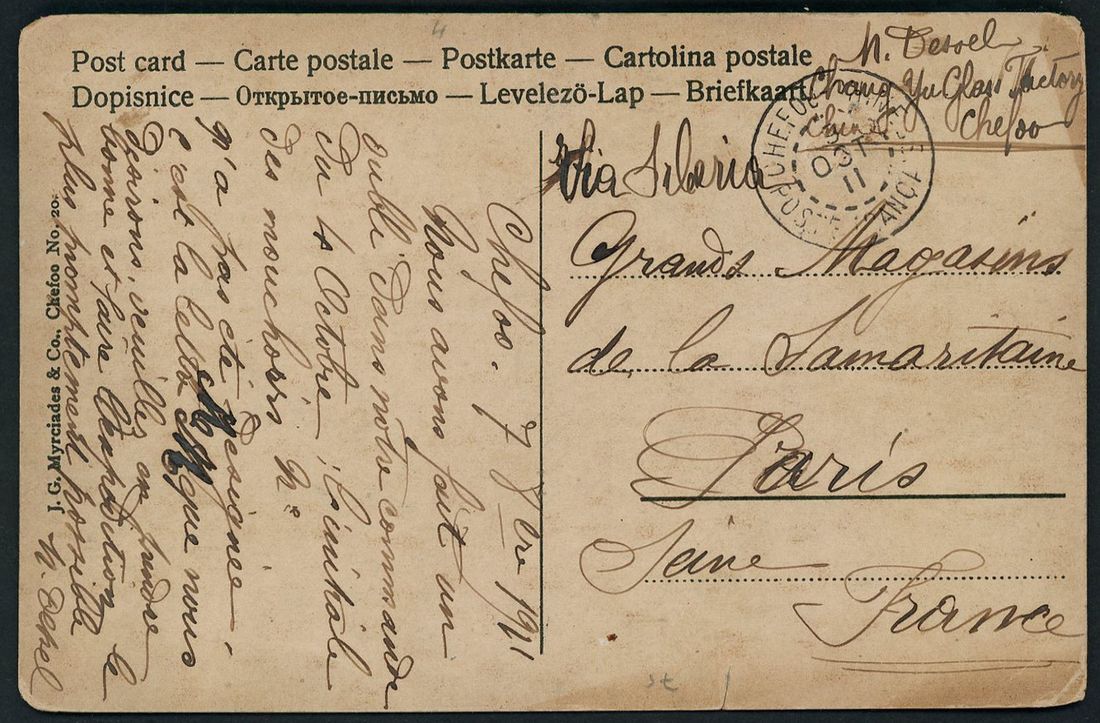 Post card — Carte postale — Postkarte — Cartolina postale
Dopisnice — Открытое-письмо — Levelezö-Lap — Briefkaart
Chang Yu Glass Factory
Chefoo
China
CHEFOO CHINE
OCT
11
POSTE FRANÇAISE
Via Siberia
Grands Magasins
de la Samaritaine
Paris
Seine
France
Chefoo. 7 8bre 1911
Nous avons fait un
oubli dans notre commande
du 4 Octobre, l'initiale
des mouchoirs
n'a pas été designée
c'est la lettre M que nous
désirons, veuillez en prendre
bonne et faire l'expédition le
plus promptement possible
J. G. Myrciades & Co., Chefoo No. 20.